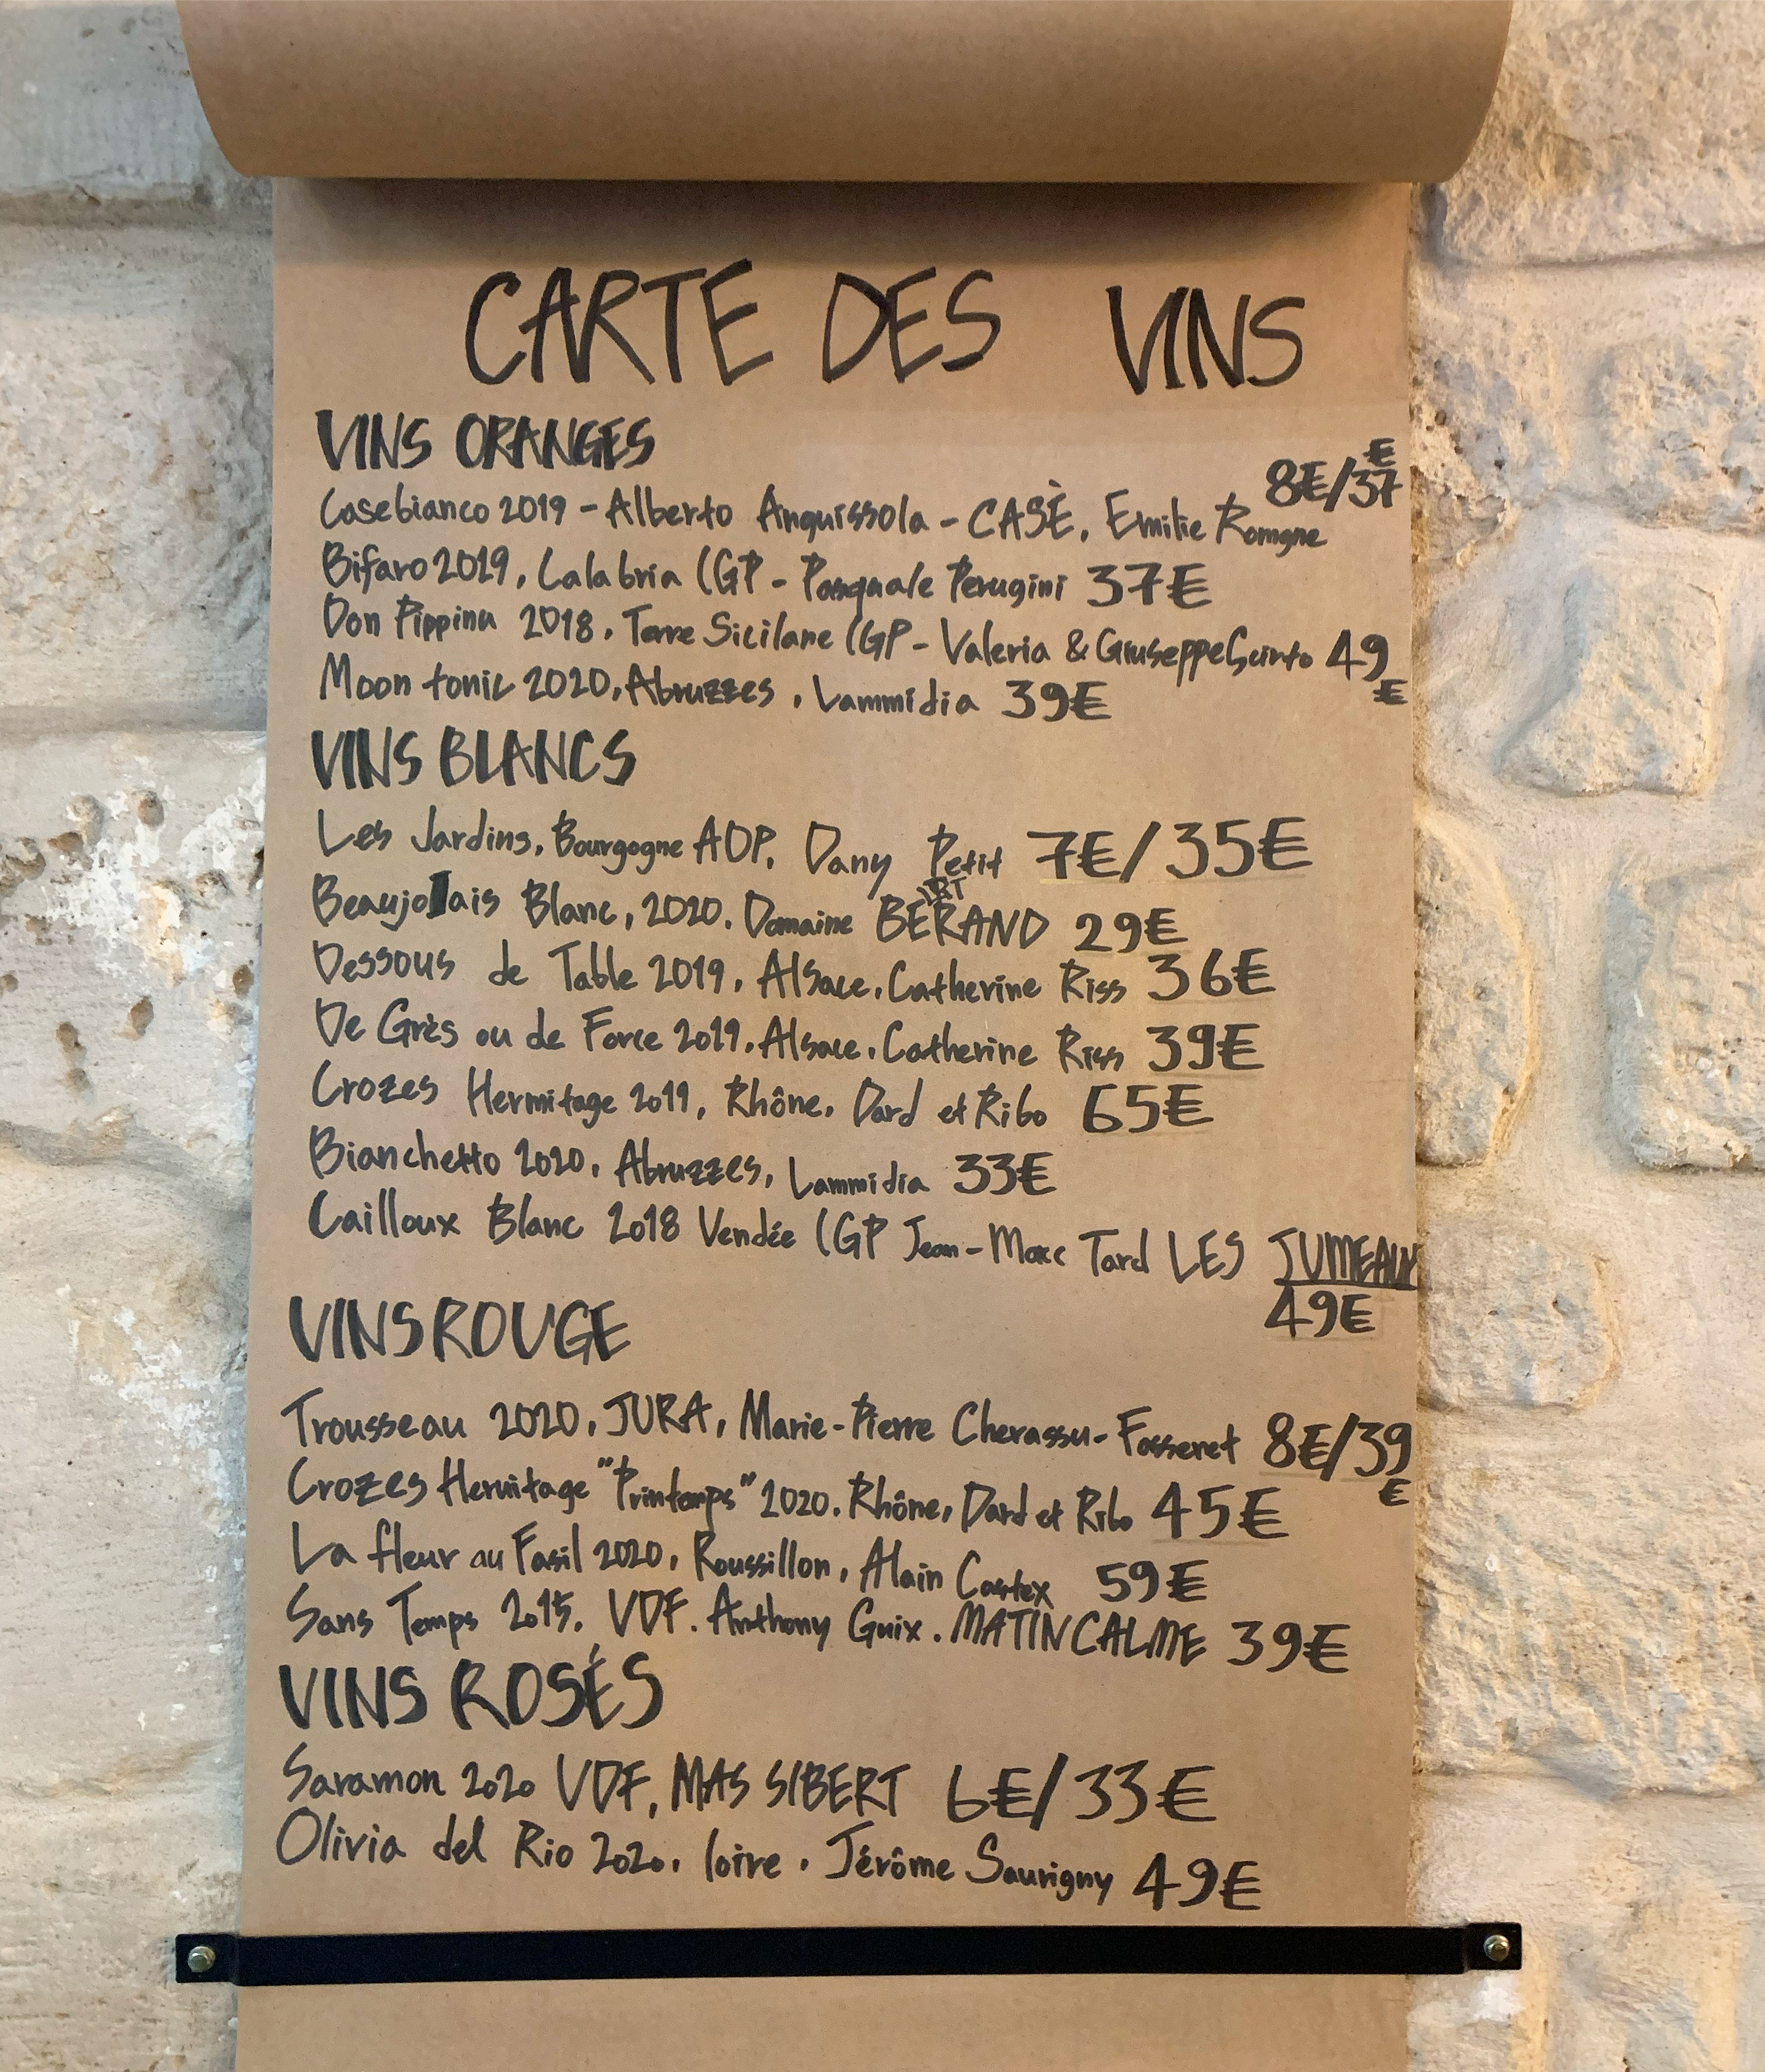 CARTE DES VINS
VINS ORANGES
Casebianco 2019 - Alberto Anguissola - CASÈ, Emilie Romgne 8€/37€
Bifaro 2019, Calabria IGP - Pasquale Perugini 37€
Don Pippinu 2018, Terre Sicilane IGP - Valeria & Giuseppe Scirto 49€
Moon tonic 2020, Abruzzes, Lammidia 39€
VINS BLANCS
Les Jardins, Bourgogne AOP, Dany Petit 7€/35€
Beaujolais Blanc, 2020. Domaine BERAND 29€
Dessous de Table 2019, Alsace, Catherine Riss 36€
De Grès ou de Force 2019, Alsace, Catherine Riss 39€
Crozes Hermitage 2019, Rhône, Dard et Ribo 65€
Bianchetto 2020, Abruzzes, Lammidia 33€
Cailloux Blanc 2018 Vendée IGP Jean-Marc Tard LES JUMEAUX
49€
VINS ROUGE
Trousseau 2020, JURA, Marie-Pierre Chevassu-Fassenet 8€/39€
Crozes Hermitage "Printemps" 2020. Rhône, Dard et Ribo 45€
La fleur au Fasil 2020, Roussillon, Alain Castex 59€
Sans Temps 2015. VDF. Anthony Guix. MATIN CALME 39€
VINS ROSÉS
Saramon 2020 VDF, MAS SIBERT 6€/33€
Olivia del Rio 2020, loire, Jérôme Saurigny 49€